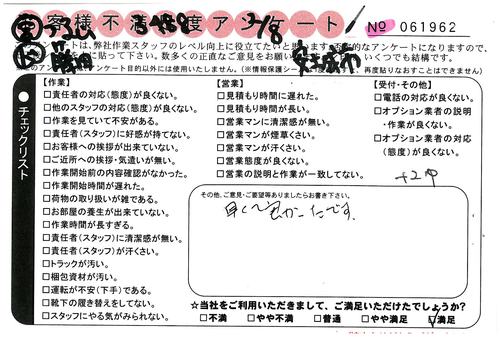 客様不満度アンケート № 061962
ートは、弊社作業スタッフのレベル向上に役立てたいと思います。
に貼って下さい。数多くのご正直なご意見をお願い いくつでも結構です。
のアンケート目的以外には使用いたしません。（※情報保護シール 再度貼りなおすことはできません）
チェックリスト
【作業】
□責任者の対応(態度)が良くない。
□他のスタッフの対応(態度)が良くない。
□作業を見ていて不安がある。
□責任者(スタッフ)に好感が持てない。
□お客様への挨拶が出来ていない。
□ご近所への挨拶・気遣いが無い。
□作業開始前の内容確認がなかった。
□作業開始時間が遅れた。
□荷物の取り扱いが雑である。
□お部屋の養生が出来ていない。
□作業時間が長すぎる。
□責任者(スタッフ)に清潔感が無い。
□責任者(スタッフ)が汗くさい。
□トラックが汚い。
□梱包資材が汚い。
□運転が不安(下手)である。
□靴下の履き替えをしてない。
□スタッフにやる気がみられない。
【営業】
□見積もり時間に遅れた。
□見積もり時間が長い。
□営業マンに清潔感が無い。
□営業マンが煙草くさい。
□営業マンが汗くさい。
□営業態度が良くない。
□営業の説明と作業が一致してない。
【受付・その他】
□電話の対応が良くない。
□オプション業者の説明
・作業が良くない。
□オプション業者の対応
(態度)が良くない。
その他、ご意見・ご要望等ありましたらお書き下さい。
早くて良かったです。
☆当社をご利用いただきまして、ご満足いただけたでしょうか？
□不満 □やや不満 □普通 □やや満足 □満足